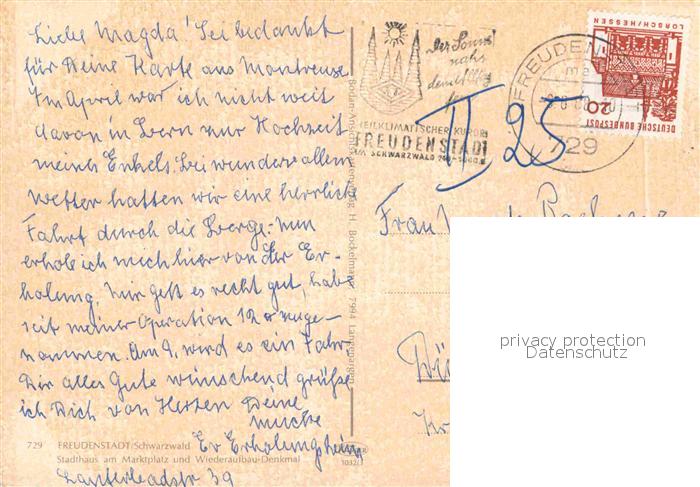 Liebe Magda! Sei bedankt
für Deine Karte aus Montreux.
Im April war ich nicht weit
davon in Bern zur Hochzeit
meines Enkels. Bei wundervollem
Wetter hatten wir eine herrliche
Fahrt durch die Berge. Nun
erhole ich mich hier von der Er-
holung. Mir geht es recht gut, habe
seit meiner Operation 12 zuge-
nommen. Am 9. wird es ein Jahr.
Dir alles Gute wünschend grüße
ich Dich von Herzen Deine
Ev Erholungsheim
Lauterbadstr 39
729 FREUDENSTADT/Schwarzwald
Stadthaus am Marktplatz und Wiederaufbau-Denkmal
H. Bockelmann, 7994 Langenargen
1032/
Der Sonne
nah
HEILKLIMATISCHER KURORT
FREUDENSTADT
IM SCHWARZWALD
FREUDEN
729
DEUTSCHE BUNDESPOST
20
LORSCH/HESSEN
II 25
Frau
privacy protection
Datenschutz